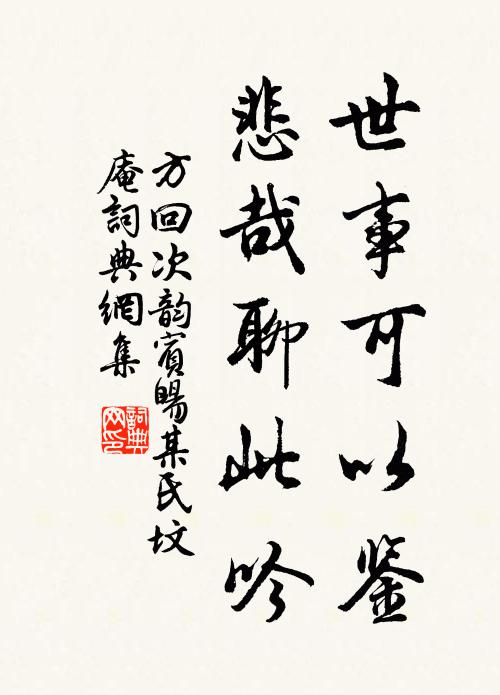 世事可以鉴
悲哉聊此吟
方回次韵賓暘某氏坟
庵詞典網集
詞典網印